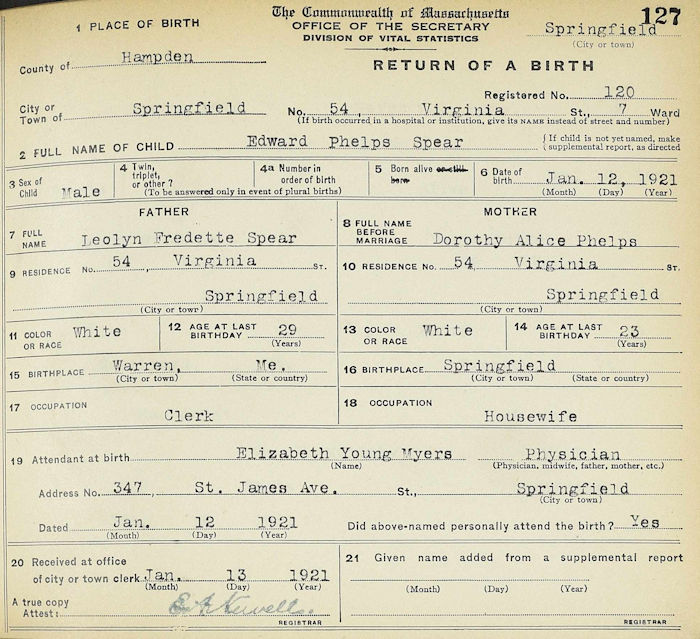 The Commonwealth of Massachusetts 127
1 PLACE OF BIRTH OFFICE OF THE SECRETARY Springfield
DIVISION OF VITAL STATISTICS (City or town)
County of Hampden RETURN OF A BIRTH
Registered No. 120
City or Town of Springfield No. 54, Virginia St., 7 Ward
(If birth occurred in a hospital or institution, give its NAME instead of street and number)
2 FULL NAME OF CHILD Edward Phelps Spear { If child is not yet named, make supplemental report, as directed
3 Sex of Child Male 4 Twin, triplet, or other? 4a Number in order of birth 5 Born alive or still born 6 Date of birth Jan. 12, 1921
(To be answered only in event of plural births) (Month) (Day) (Year)
FATHER MOTHER
7 FULL NAME Leolyn Fredette Spear 8 FULL NAME BEFORE MARRIAGE Dorothy Alice Phelps
9 RESIDENCE No. 54, Virginia ST. 10 RESIDENCE No. 54, Virginia ST.
Springfield Springfield
(City or town) (City or town)
11 COLOR OR RACE White 12 AGE AT LAST BIRTHDAY 29 13 COLOR OR RACE White 14 AGE AT LAST BIRTHDAY 23
(Years) (Years)
15 BIRTHPLACE Warren, Me. 16 BIRTHPLACE Springfield
(City or town) (State or country) (City or town) (State or country)
17 OCCUPATION Clerk 18 OCCUPATION Housewife
19 Attendant at birth Elizabeth Young Myers Physician
(Name) (Physician, midwife, father, mother, etc.)
Address No. 347, St. James Ave. St., Springfield
(City or town)
Dated Jan. 12 1921 Did above-named personally attend the birth? Yes
(Month) (Day) (Year)
20 Received at office of city or town clerk Jan. 13 1921 21 Given name added from a supplemental report
(Month) (Day) (Year) (Month) (Day) (Year)
A true copy
Attest:
REGISTRAR REGISTRAR